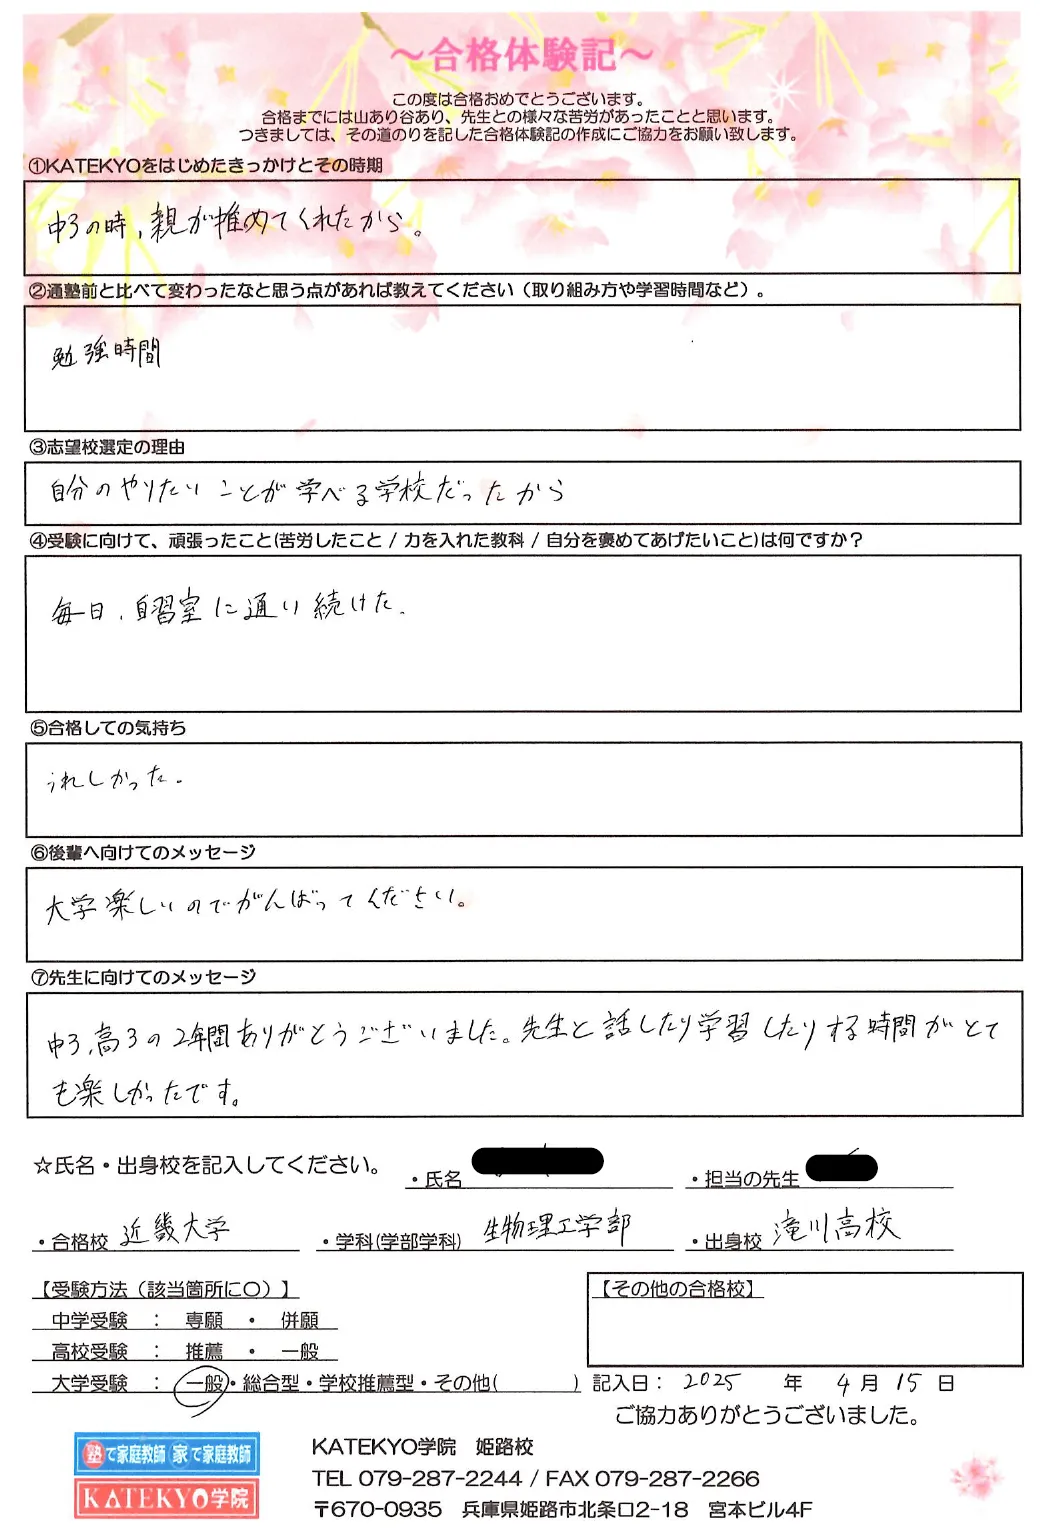 ～合格体験記～
この度は合格おめでとうございます。
合格までには山あり谷あり、先生との様々な苦労があったことと思います。
つきましては、その道のりを記した合格体験記の作成にご協力をお願い致します。
①KATEKYOをはじめたきっかけとその時期
中3の時、親が推めてくれたから。
②通塾前と比べて変わったなと思う点があれば教えてください（取り組み方や学習時間など）。
勉強時間
③志望校選定の理由
自分のやりたいことが学べる学校だったから
④受験に向けて、頑張ったこと(苦労したこと / 力を入れた教科 / 自分を褒めてあげたいこと)は何ですか？
毎日、自習室に通い続けた。
⑤合格しての気持ち
うれしかった。
⑥後輩へ向けてのメッセージ
大学楽しいのでがんばってください。
⑦先生に向けてのメッセージ
中3,高3の2年間ありがとうございました。先生と話したり学習したりする時間がとて
も楽しかったです。
☆氏名・出身校を記入してください。
・氏名
・担当の先生
・合格校 近畿大学
・学科(学部学科) 生物理工学部
・出身校 滝川高校
【受験方法（該当箇所に〇）】
中学受験 ： 専願 ・ 併願
高校受験 ： 推薦 ・ 一般
大学受験 ： 一般・総合型・学校推薦型・その他( )
【その他の合格校】
記入日： 2025 年 4月 15 日
ご協力ありがとうございました。
塾で家庭教師 家で家庭教師
KATEKYO学院
KATEKYO学院 姫路校
TEL 079-287-2244 / FAX 079-287-2266
〒670-0935 兵庫県姫路市北条口2-18 宮本ビル4F